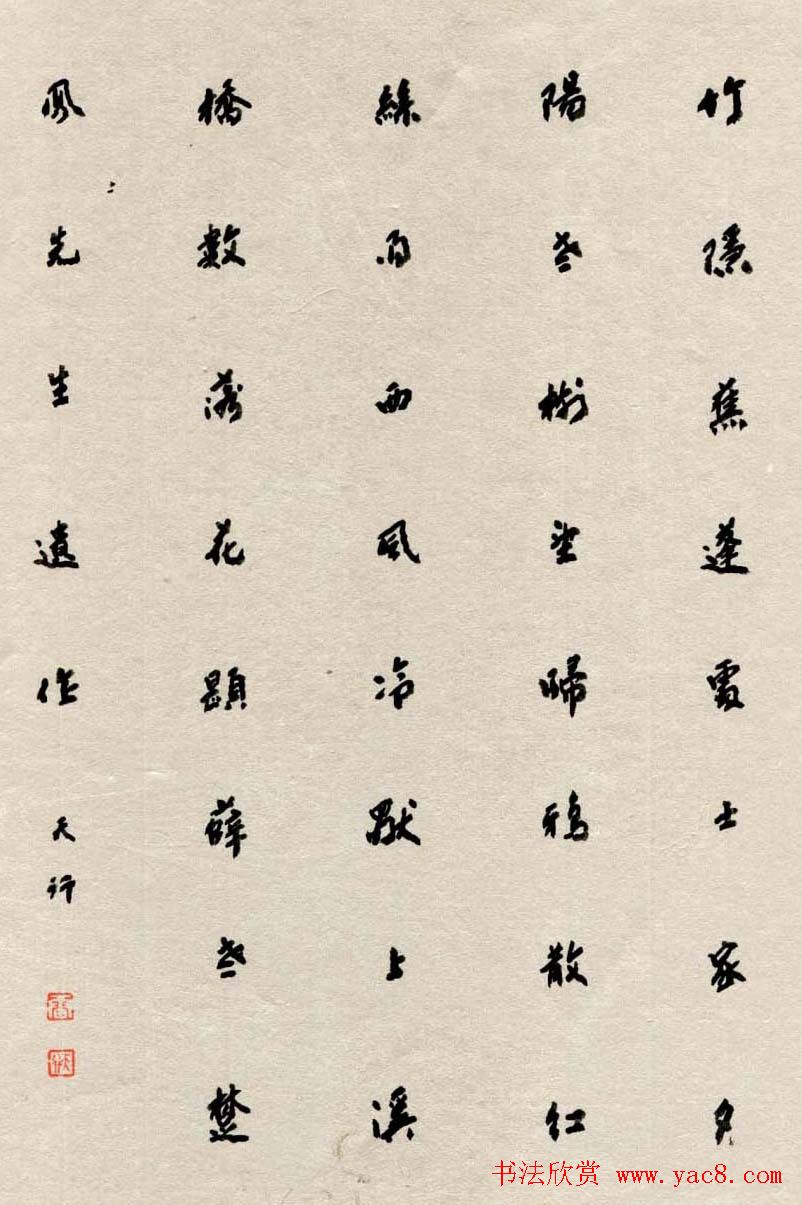 竹隱蕉蓬處士家夕
陽老樹望歸鴉散紅
絲雨西風冷默上溪
橋數落花題薛老楚
鳳先生遺作 天行
书法欣赏 www.yac8.com